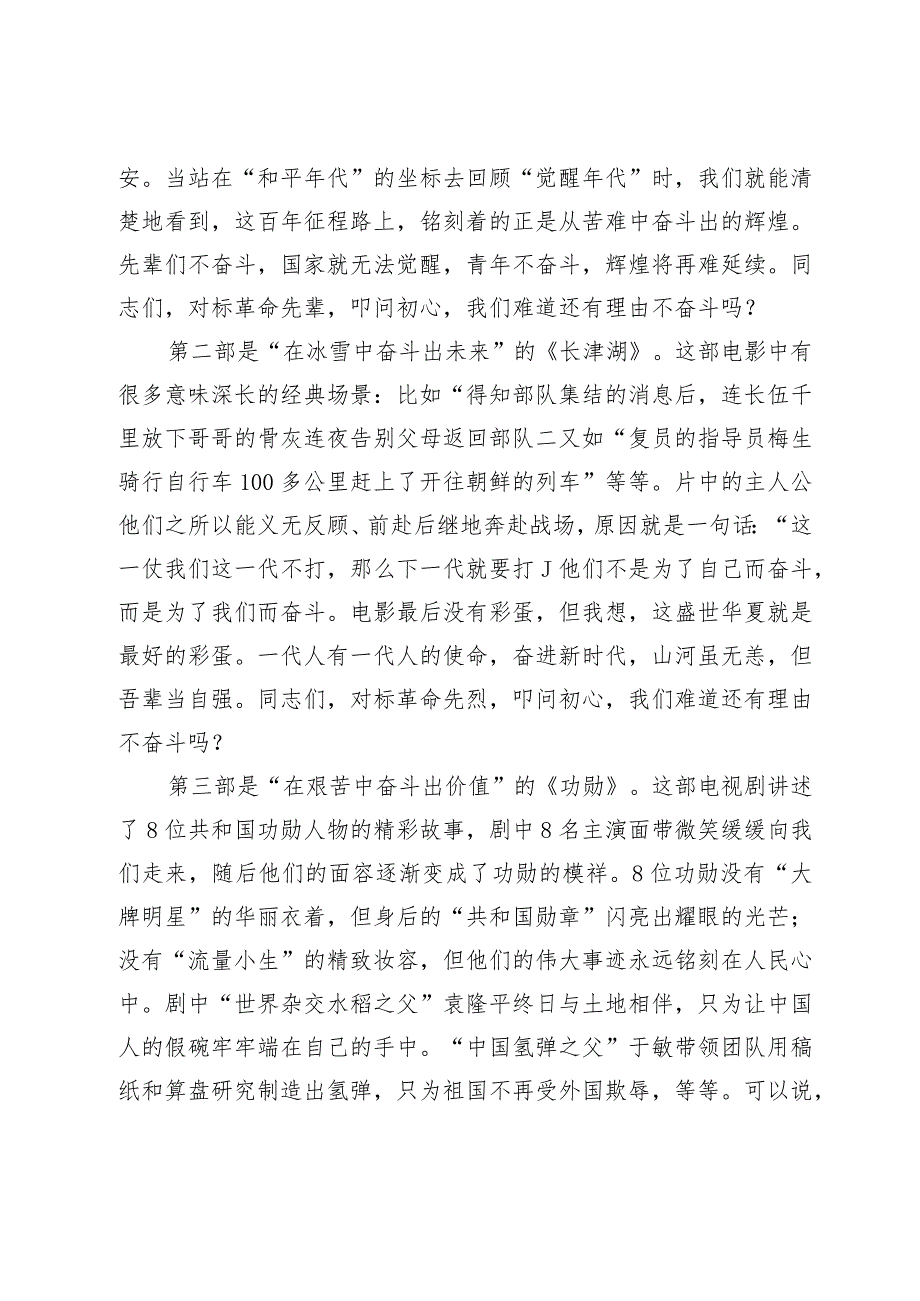 安。当站在“和平年代”的坐标去回顾“觉醒年代”时，我们就能清
楚地看到，这百年征程路上，铭刻着的正是从苦难中奋斗出的辉煌。
先辈们不奋斗，国家就无法觉醒，青年不奋斗，辉煌将再难延续。同
志们，对标革命先辈，叩问初心，我们难道还有理由不奋斗吗？
第二部是“在冰雪中奋斗出未来”的《长津湖》。这部电影中有
很多意味深长的经典场景：比如“得知部队集结的消息后，连长伍千
里放下哥哥的骨灰连夜告别父母返回部队二又如“复员的指导员梅生
骑行自行车100多公里赶上了开往朝鲜的列车”等等。片中的主人公
他们之所以能义无反顾、前赴后继地奔赴战场，原因就是一句话：“这
一仗我们这一代不打，那么下一代就要打J他们不是为了自己而奋斗，
而是为了我们而奋斗。电影最后没有彩蛋，但我想，这盛世华夏就是
最好的彩蛋。一代人有一代人的使命，奋进新时代，山河虽无恙，但
吾辈当自强。同志们，对标革命先烈，叩问初心，我们难道还有理由
不奋斗吗？
第三部是“在艰苦中奋斗出价值”的《功勋》。这部电视剧讲述
了8位共和国功勋人物的精彩故事，剧中8名主演面带微笑缓缓向我
们走来，随后他们的面容逐渐变成了功勋的模祥。8位功勋没有“大
牌明星”的华丽衣着，但身后的“共和国勋章”闪亮出耀眼的光芒；
没有“流量小生”的精致妆容，但他们的伟大事迹永远铭刻在人民心
中。剧中“世界杂交水稻之父”袁隆平终日与土地相伴，只为让中国
人的假碗牢牢端在自己的手中。“中国氢弹之父”于敏带领团队用稿
纸和算盘研究制造出氢弹，只为祖国不再受外国欺辱，等等。可以说，